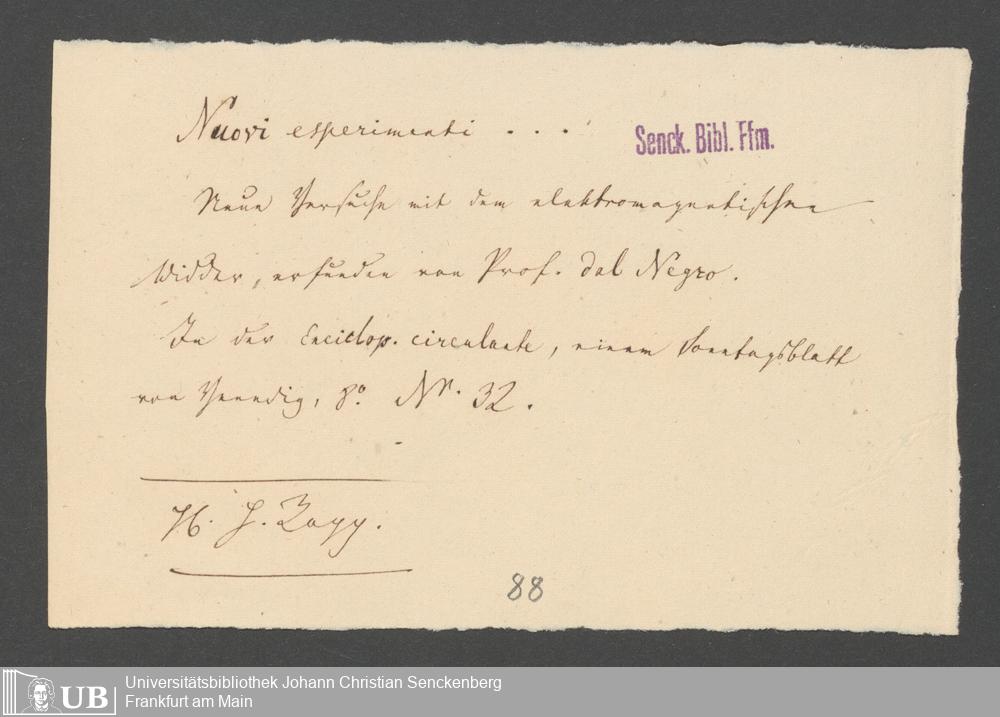 Nuovi esperimenti . . .
Senck. Bibl. Ffm.
Neue Versuche mit dem elektromagnetischen
Widder, erfunden von Prof. dal Negro.
In der Enciclop. circulante, einem Sonntagsblatt
von Venedig, 8º. Nr. 32.
H.
88
UB
Universitätsbibliothek Johann Christian Senckenberg
Frankfurt am Main